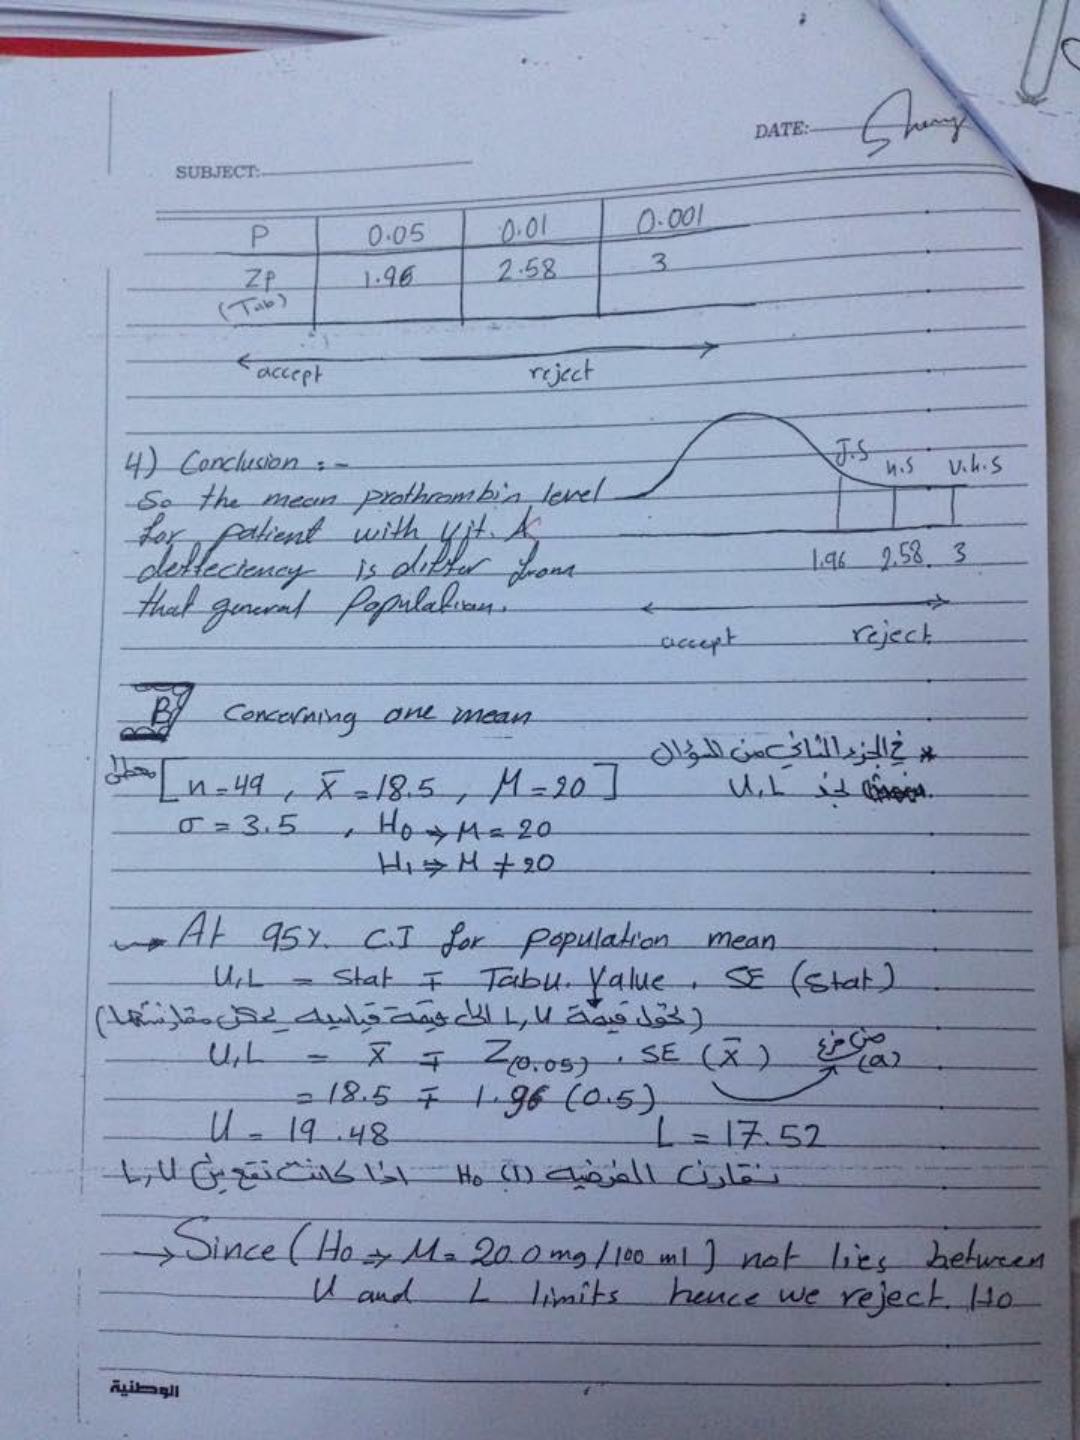 DATE:
SUBJECT:
P 0.05 0.01 0.001
ZP 1.96 2.58 3
(Tab)
accept reject
4) Conclusion :-
So the mean prothrombin level
for patient with vit. K
deffeciency is differ from
that general Population.
J.S H.S V.H.S
1.96 2.58 3
accept reject
B Concerning one mean
* في الجزء الثاني من السؤال
نجد U,L
[n=49 , x̄ =18.5 , M=20]
σ = 3.5 , H₀ → M = 20
H₁ ⇒ M ≠ 20
→ At 95%. C.I for population mean
U,L = Stat ∓ Tabu. Value . SE (Stat)
(نحول قيمة L,U الى قيمة قياسيه يمكن مقارنتها)
U,L = x̄ ∓ Z(0.05) . SE (x̄) من فرع (a)
= 18.5 ∓ 1.96 (0.5)
U = 19.48 L = 17.52
نقارن الفرضيه (1) H₀ اذا كانت تقع بين L,U
→ Since (H₀ → M= 20.0 mg/100 ml) not lies between
U and L limits hence we reject. H₀
الوطنية